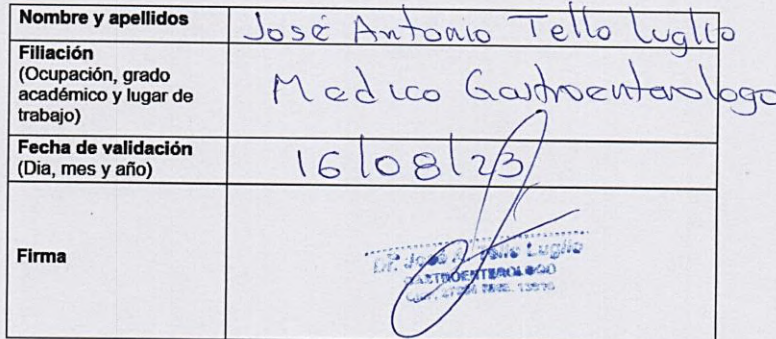 Nombre y apellidos
José Antonio Tello Luglio
Filiación
(Ocupación, grado
académico y lugar de
trabajo)
Medico Gastroenterologo
Fecha de validación
(Dia, mes y año)
16/08/23
Firma
Dr. José A. Tello Luglio
GASTROENTEROLOGO